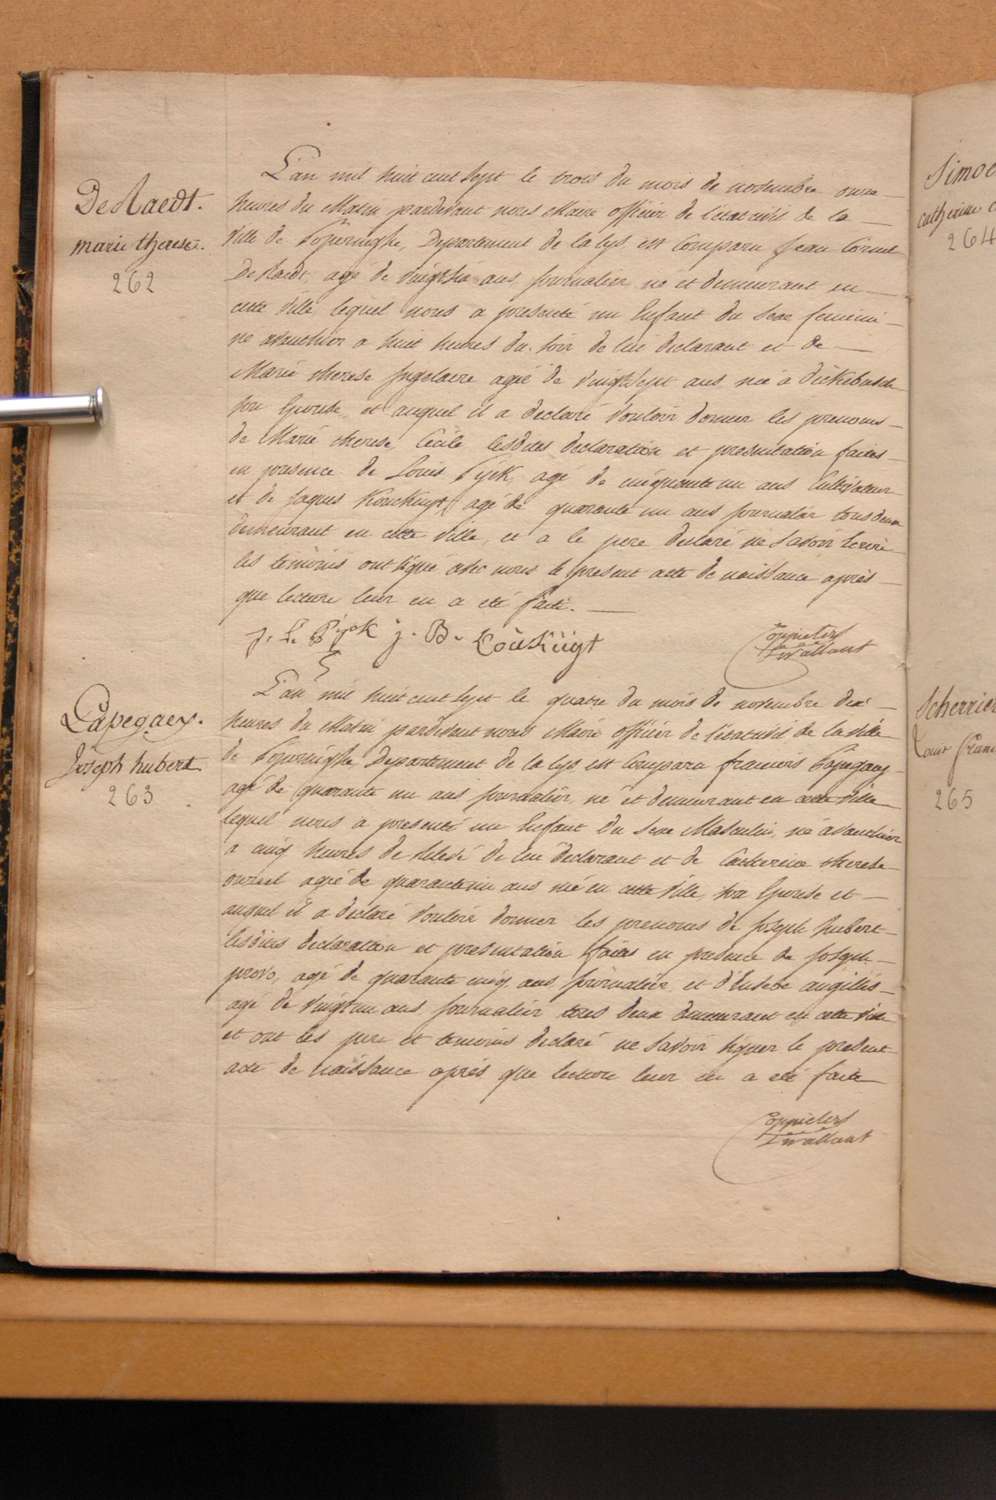 De Raedt.
marie therese.
262
L'an mil huit cent sept le trois du mois de novembre onze
heures du Matin pardevant nous Maire officier de l'etat civil de la
Ville de Poperinghe, Departement de la Lys est Comparu Jean
De Raedt, agé de Vingt ans journalier né et demeurant en
cette Ville lequel nous a presenté un Enfant du Sexe femini-
ne a huit heures du soir de lui declarant et de
Marie therese Ingelaere agée de Vingtsept ans née à Dickebusch
son Epouse, et auquel il a declaré Vouloir donner les prenoms
de Marie therese, Cecile lesdites declaration et presentation faites
en presence de Louis Pyck, agé de cinquante un ans Cultivateur
et de Jaques Kouckuyt, agé de quarante un ans journalier tous deux
demeurant en cette Ville, et a le pere declaré ne Savoir Ecrire
les temoins ont signé avec nous le present acte de naissance après
que lecture leur en a été faite.
J. L. Pyck J. B. Coùkùyt
Coppieters
Twallant
Papegaey.
Joseph hubert
263
L'an mil huit cent sept le quatre du mois de novembre dix
heures du Matin pardevant nous Maire officier de l'etat civil de la Ville
de Poperinghe Departement de la Lys est Comparu francois Papegaey
agé de quarante un ans journalier, né et demeurant en cette Ville
lequel nous a presenté un Enfant du Sexe Masculin, né
a cinq heures de de lui declarant et de Catherine therese
agée de quarante un ans née en cette Ville, son Epouse et
auquel il a declaré Vouloir donner les prenoms de Joseph hubert
lesdites declaration et presentation faites en presence de Joseph
provo, agé de quarante cinq ans journalier, et d'Eusebe
agé de Vingt un ans journalier tous deux demeurant en cette Ville
et ont les pere et temoins declaré ne Savoir signer le present
acte de Naissance après que lecture leur en a été faite
Coppieters
Twallant
Simoe
catherine
264
Scherrie
Louis
265